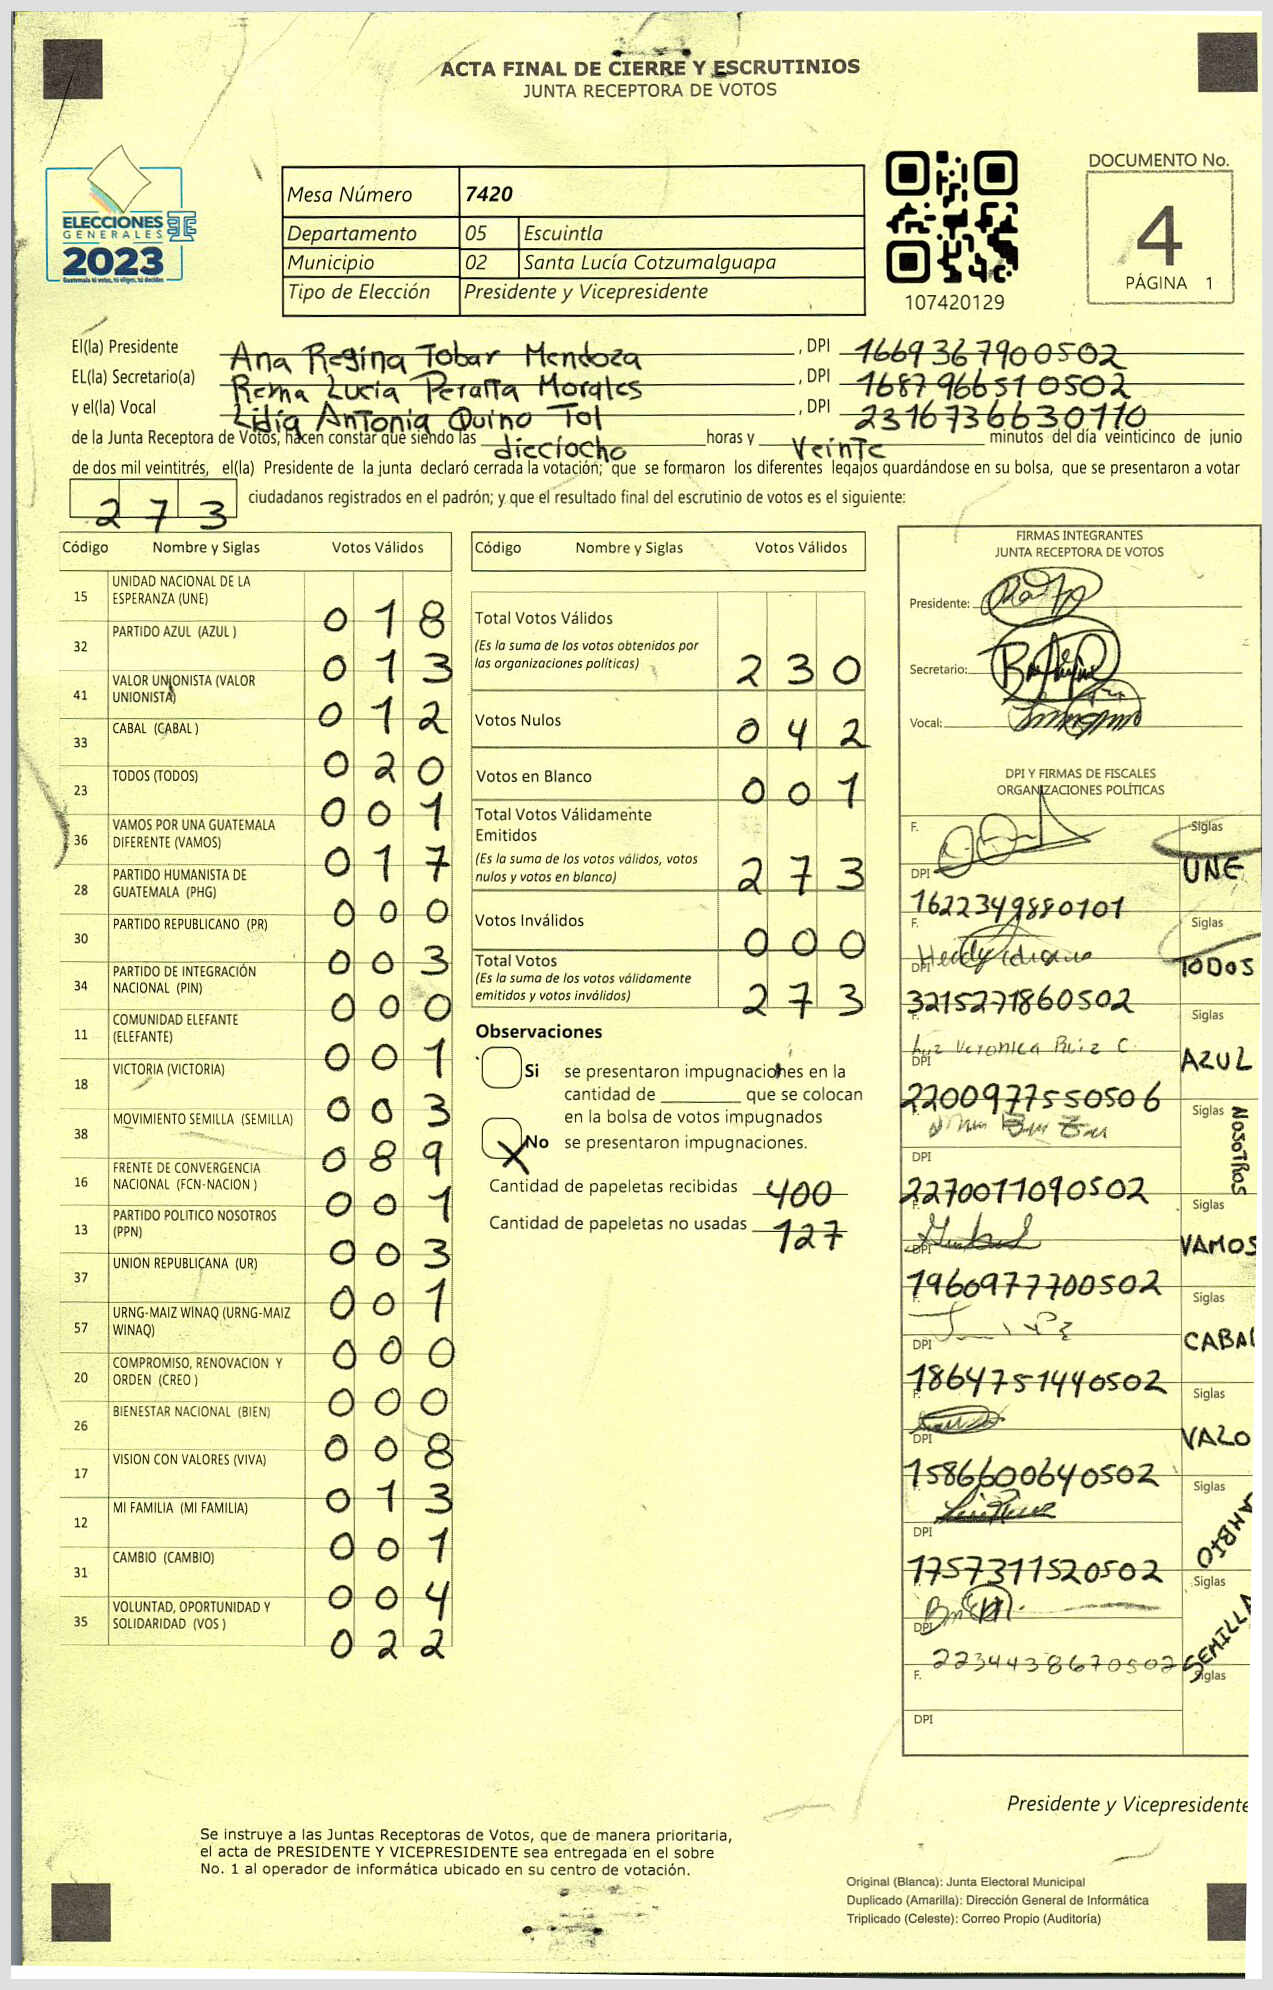 ACTA FINAL DE CIERRE Y ESCRUTINIOS
JUNTA RECEPTORA DE VOTOS
ELECCIONES
GENERALES
2023
Guatemala tú votas, tú eliges, tú decides
Mesa Número 7420
Departamento 05 Escuintla
Municipio 02 Santa Lucía Cotzumalguapa
Tipo de Elección Presidente y Vicepresidente
107420129
DOCUMENTO No.
4
PÁGINA 1
El(la) Presidente Ana Regina Tobar Mendoza , DPI 1669367900502
EL(la) Secretario(a) Rema Lucía Peralta Morales , DPI 1687966510502
y el(la) Vocal Lidia Antonia Quino Tol , DPI 2316736630110
de la Junta Receptora de Votos, hacen constar que siendo las dieciocho horas y veinte minutos del día veinticinco de junio
de dos mil veintitrés, el(la) Presidente de la junta declaró cerrada la votación; que se formaron los diferentes legajos quardándose en su bolsa, que se presentaron a votar
273 ciudadanos registrados en el padrón; y que el resultado final del escrutinio de votos es el siguiente:
Código Nombre y Siglas Votos Válidos
15 UNIDAD NACIONAL DE LA ESPERANZA (UNE) 018
32 PARTIDO AZUL (AZUL ) 013
41 VALOR UNIONISTA (VALOR UNIONISTA) 012
33 CABAL (CABAL ) 020
23 TODOS (TODOS) 001
36 VAMOS POR UNA GUATEMALA DIFERENTE (VAMOS) 017
28 PARTIDO HUMANISTA DE GUATEMALA (PHG) 000
30 PARTIDO REPUBLICANO (PR) 003
34 PARTIDO DE INTEGRACIÓN NACIONAL (PIN) 000
11 COMUNIDAD ELEFANTE (ELEFANTE) 001
18 VICTORIA (VICTORIA) 003
38 MOVIMIENTO SEMILLA (SEMILLA) 089
16 FRENTE DE CONVERGENCIA NACIONAL (FCN-NACION ) 001
13 PARTIDO POLITICO NOSOTROS (PPN) 003
37 UNION REPUBLICANA (UR) 001
57 URNG-MAIZ WINAQ (URNG-MAIZ WINAQ) 000
20 COMPROMISO, RENOVACION Y ORDEN (CREO ) 000
26 BIENESTAR NACIONAL (BIEN) 008
17 VISION CON VALORES (VIVA) 013
12 MI FAMILIA (MI FAMILIA) 001
31 CAMBIO (CAMBIO) 004
35 VOLUNTAD, OPORTUNIDAD Y SOLIDARIDAD (VOS ) 022
Código Nombre y Siglas Votos Válidos
Total Votos Válidos
(Es la suma de los votos obtenidos por
las organizaciones políticas) 230
Votos Nulos 042
Votos en Blanco 001
Total Votos Válidamente
Emitidos
(Es la suma de los votos válidos, votos
nulos y votos en blanco) 273
Votos Inválidos 000
Total Votos
(Es la suma de los votos válidamente
emitidos y votos inválidos) 273
Observaciones
Si se presentaron impugnaciones en la
cantidad de ________ que se colocan
en la bolsa de votos impugnados
X No se presentaron impugnaciones.
Cantidad de papeletas recibidas 400
Cantidad de papeletas no usadas 127
FIRMAS INTEGRANTES
JUNTA RECEPTORA DE VOTOS
Presidente:
Secretario:
Vocal:
DPI Y FIRMAS DE FISCALES
ORGANIZACIONES POLÍTICAS
F. Siglas UNE
DPI 1622349880101
F. Siglas TODOS
DPI 3215271860502
F. Luz Veronica Ruiz C. Siglas AZUL
DPI 2200977550506
Siglas NOSOTROS
DPI 2270011090502
F. Siglas VAMOS
DPI 1960977700502
F. Siglas CABAL
DPI 1864751440502
F. Siglas VALO
DPI 1586600640502
F. Siglas AMBIO
DPI 1757311520502
F. Siglas SEMILLA
DPI 2234438670502
F. Siglas
DPI
Presidente y Vicepresidente
Se instruye a las Juntas Receptoras de Votos, que de manera prioritaria,
el acta de PRESIDENTE Y VICEPRESIDENTE sea entregada en el sobre
No. 1 al operador de informática ubicado en su centro de votación.
Original (Blanca): Junta Electoral Municipal
Duplicado (Amarilla): Dirección General de Informática
Triplicado (Celeste): Correo Propio (Auditoría)